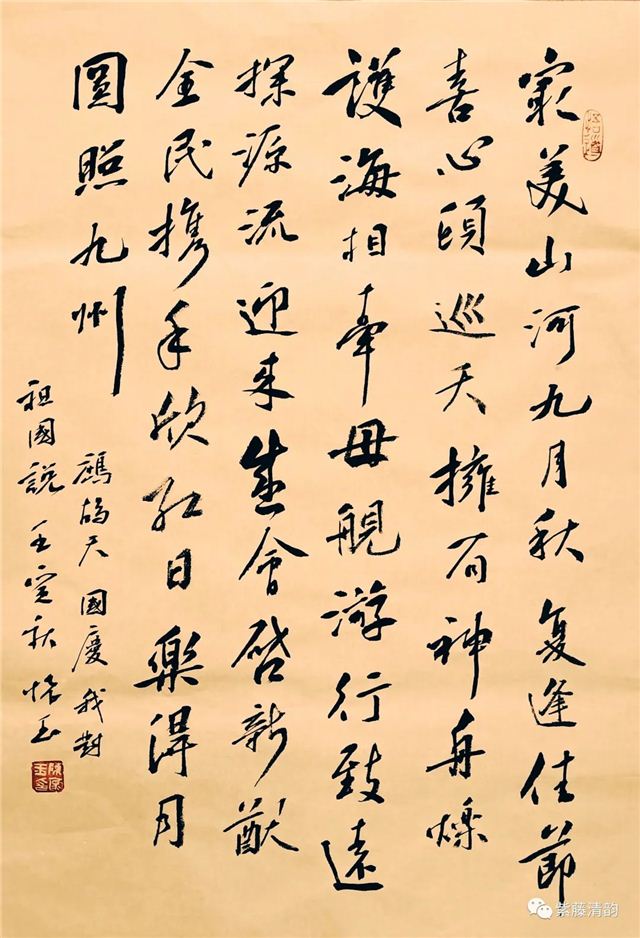 最美山河九月秋复逢佳節
喜心頭巡天擁有神舟爍
護海相牽母舰游行致遠
探源流迎来盛會启新猷
全民携手欣红日樂得月
圓照九州
鷓鴣天國慶我對
祖國説壬寅秋怀玉
紫藤清韵